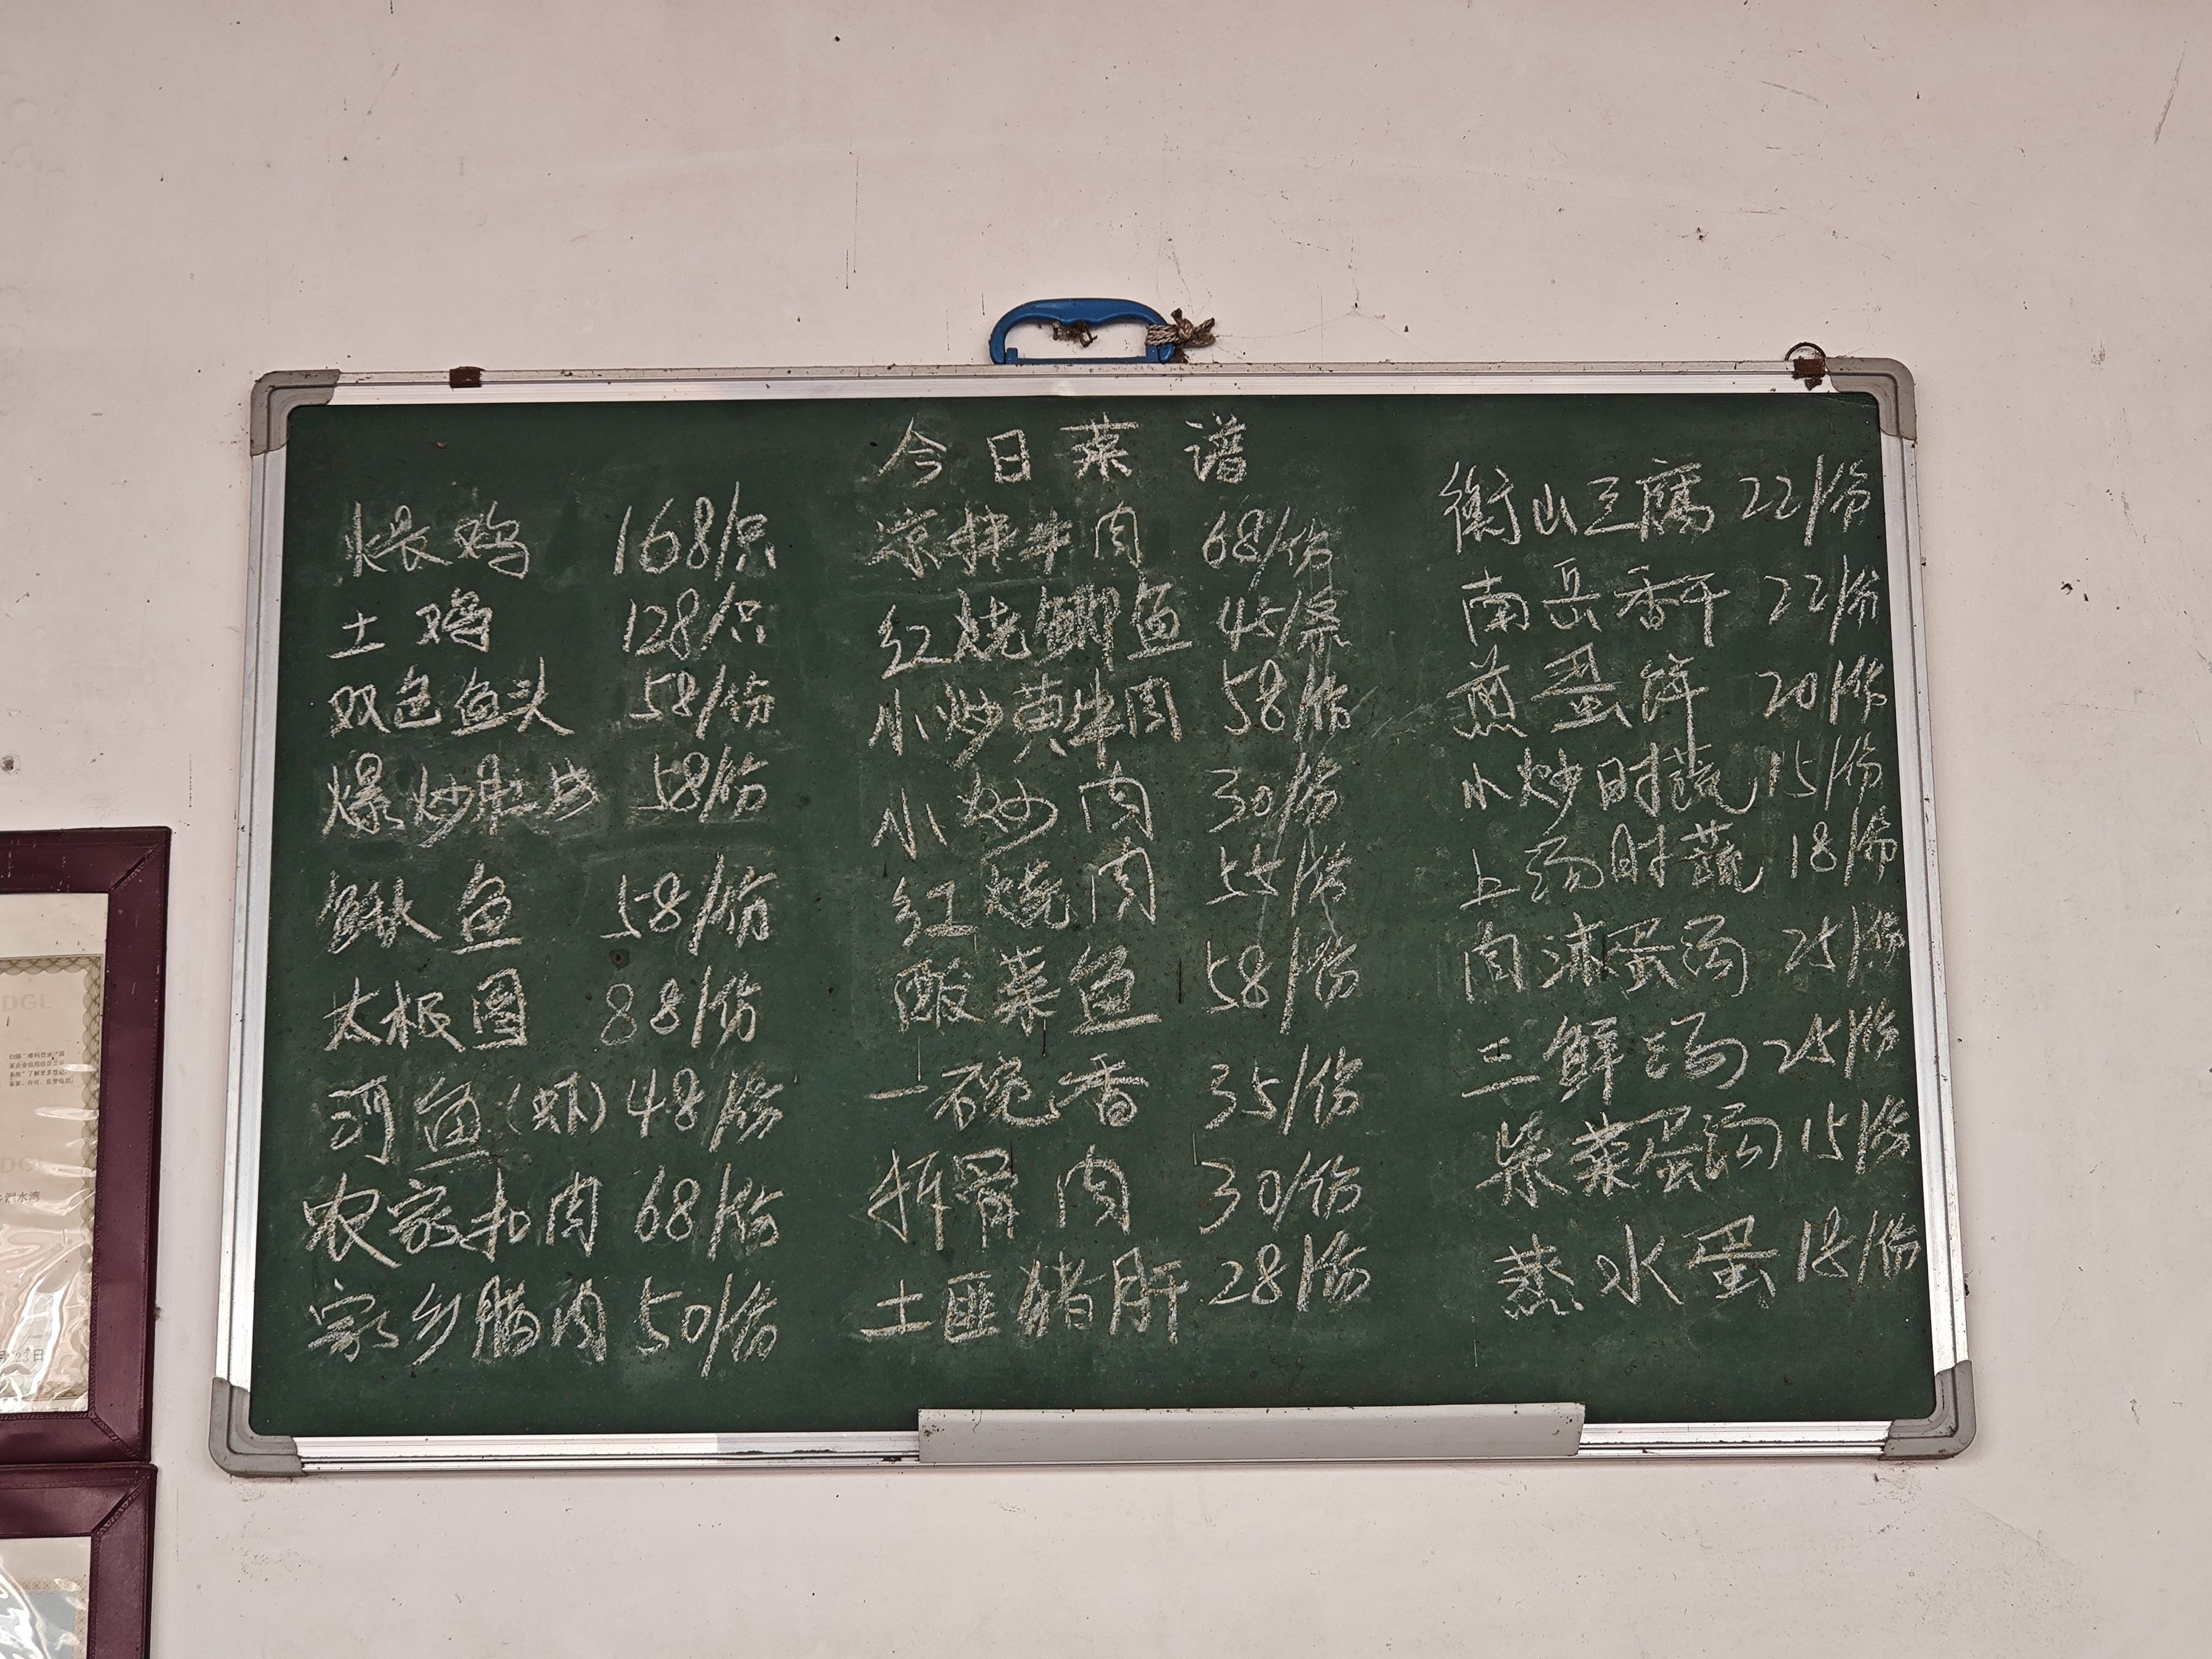 今日菜谱
煨鸡 168/只
土鸡 128/只
双色鱼头 58/份
爆炒肚丝 58/份
鳅鱼 58/份
太极图 88/份
河鱼(虾) 48/份
农家扣肉 68/份
家乡腊肉 50/份
凉拌牛肉 68/份
红烧鲫鱼 45/条
小炒黄牛肉 58/份
小炒肉 30/份
红烧肉 55/份
酸菜鱼 58/份
一碗香 35/份
拆骨肉 30/份
土匪猪肝 28/份
衡山豆腐 22/份
南岳香干 22/份
煎蛋饼 20/份
小炒时蔬 15/份
上汤时蔬 18/份
肉沫蛋汤 25/份
三鲜汤 25/份
紫菜蛋汤 15/份
蒸水蛋 18/份
DGL
23日